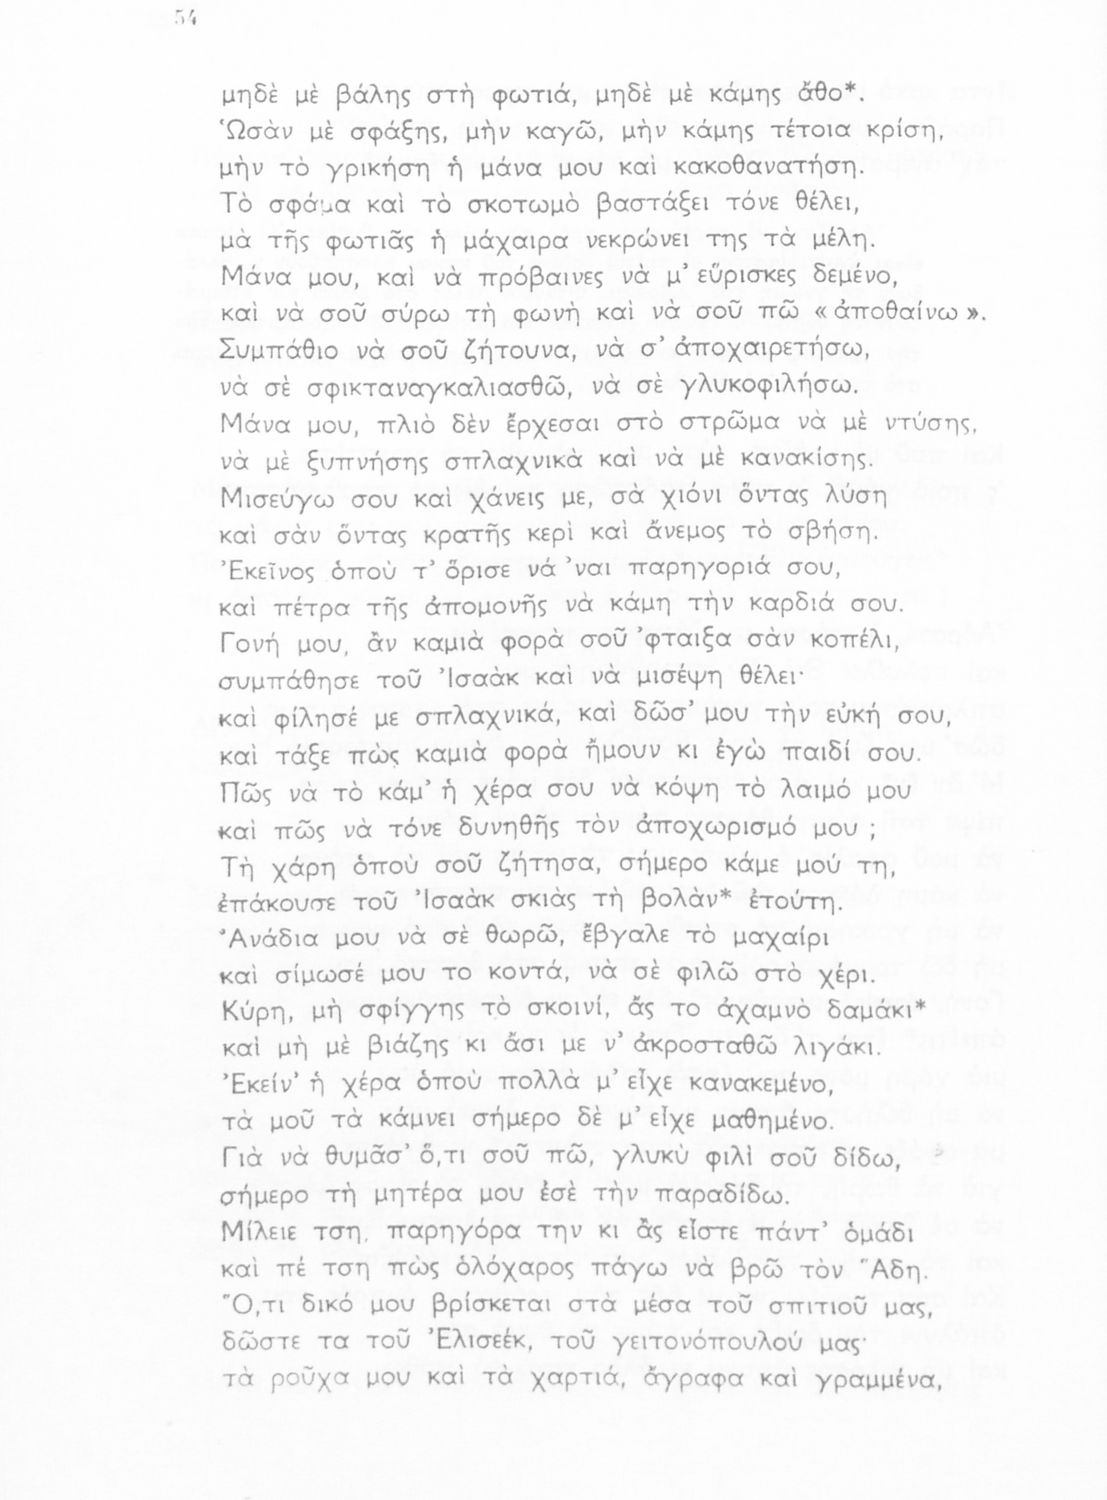 54
μηδὲ μὲ βάλης στὴ φωτιά, μηδὲ μὲ κάμης ἄθο*.
Ὡσὰν μὲ σφάξης, μὴν καγῶ, μὴν κάμης τέτοια κρίση,
μὴν τὸ γρικήση ἡ μάνα μου καὶ κακοθανατήση.
Τὸ σφάμα καὶ τὸ σκοτωμὸ βαστάξει τόνε θέλει,
μὰ τῆς φωτιᾶς ἡ μάχαιρα νεκρώνει της τὰ μέλη.
Μάνα μου, καὶ νὰ πρόβαινες νὰ μ' εὕρισκες δεμένο,
καὶ νὰ σοῦ σύρω τὴ φωνὴ καὶ νὰ σοῦ πῶ « ἀποθαίνω ».
Συμπάθιο νὰ σοῦ ζήτουνα, νὰ σ' ἀποχαιρετήσω,
νὰ σὲ σφικταναγκαλιασθῶ, νὰ σὲ γλυκοφιλήσω.
Μάνα μου, πλιὸ δὲν ἔρχεσαι στὸ στρῶμα νὰ μὲ ντύσης,
νὰ μὲ ξυπνήσης σπλαχνικὰ καὶ νὰ μὲ κανακίσης.
Μισεύγω σου καὶ χάνεις με, σὰ χιόνι ὅντας λύση
καὶ σὰν ὅντας κρατῆς κερὶ καὶ ἄνεμος τὸ σβήση.
Ἐκεῖνος ὁποὺ τ' ὅρισε νά 'ναι παρηγοριά σου,
καὶ πέτρα τῆς ἀπομονῆς νὰ κάμη τὴν καρδιά σου.
Γονή μου, ἂν καμιὰ φορὰ σοῦ 'φταιξα σὰν κοπέλι,
συμπάθησε τοῦ Ἰσαὰκ καὶ νὰ μισέψη θέλει·
καὶ φίλησέ με σπλαχνικά, καὶ δῶσ' μου τὴν εὐκή σου,
καὶ τάξε πὼς καμιὰ φορὰ ἤμουν κι ἐγὼ παιδί σου.
Πῶς νὰ τὸ κάμ' ἡ χέρα σου νὰ κόψη τὸ λαιμό μου
καὶ πῶς νὰ τόνε δυνηθῆς τὸν ἀποχωρισμό μου ;
Τὴ χάρη ὁποὺ σοῦ ζήτησα, σήμερο κάμε μού τη,
ἐπάκουσε τοῦ Ἰσαὰκ σκιὰς τὴ βολὰν* ἐτούτη.
Ἀνάδια μου νὰ σὲ θωρῶ, ἔβγαλε τὸ μαχαίρι
καὶ σίμωσέ μου το κοντά, νὰ σὲ φιλῶ στὸ χέρι.
Κύρη, μὴ σφίγγης τὸ σκοινί, ἄς το ἀχαμνὸ δαμάκι*
καὶ μὴ μὲ βιάζης κι ἄσι με ν' ἀκροσταθῶ λιγάκι.
Ἐκείν' ἡ χέρα ὁποὺ πολλὰ μ' εἶχε κανακεμένο,
τὰ μοῦ τὰ κάμνει σήμερο δὲ μ' εἶχε μαθημένο.
Γιὰ νὰ θυμᾶσ' ὅ,τι σοῦ πῶ, γλυκὺ φιλὶ σοῦ δίδω,
σήμερο τὴ μητέρα μου ἐσὲ τὴν παραδίδω.
Μίλειε τση, παρηγόρα την κι ἂς εἶστε πάντ' ὁμάδι
καὶ πέ τση πὼς ὁλόχαρος πάγω νὰ βρῶ τὸν Ἅδη.
Ὅ,τι δικό μου βρίσκεται στὰ μέσα τοῦ σπιτιοῦ μας,
δῶστε τα τοῦ Ἐλισεέκ, τοῦ γειτονόπουλού μας·
τὰ ροῦχα μου καὶ τὰ χαρτιά, ἄγραφα καὶ γραμμένα,